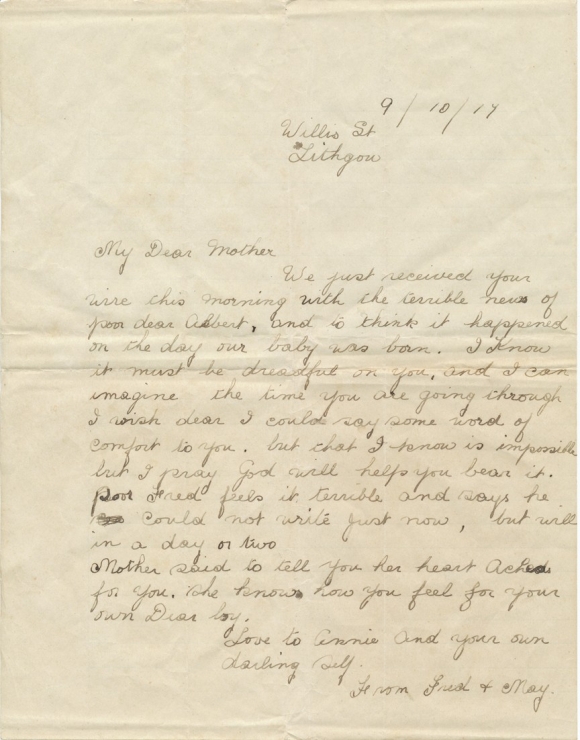 9/10/17
Willis St
Lithgow
My Dear Mother
We just received your
wire this morning with the terrible news of
poor dear Albert, and to think it happened
on the day our baby was born. I Know
it must be dreadful on you, and I can
imagine the time you are going through
I wish dear I could say some word of
comfort to you. but that I know is impossible
but I pray God will helps you bear it.
poor Fred feels it terrible and says he
could not write just now, but will
in a day or two
Mother said to tell you her heart Ached
for you. She knows how you feel for your
own Dear boy.
Love to Annie and your own
darling self.
From Fred & May.